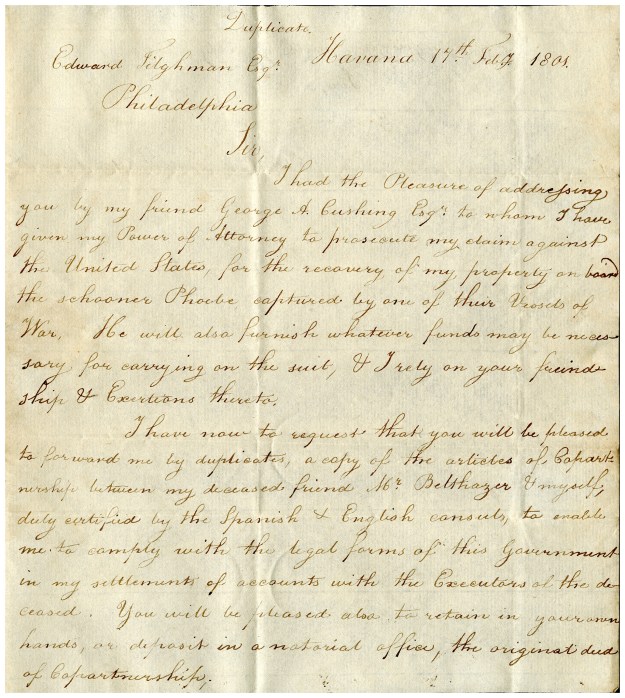 Duplicate.
Havana 17th. Feby. 1801.
Edward Tilghman Esqr.
Philadelphia
Sir,
I had the Pleasure of addressing
you by my friend George A. Cushing Esqr. to whom I have
given my Power of Attorney to prosecute my claim against
the United States, for the recovery of my property on board
the schooner Phoebe captured by one of their Vessels of
War. He will also furnish whatever funds may be neces-
sary for carrying on the suit, & I rely on your freind
ship & Exertions thereto.
I have now to request that you will be pleased
to forward me by duplicates, a copy of the articles of Copart
nership between my deceased friend Mr. Belthazer & myself,
duly certified by the Spanish & English consuls, to enable
me to comply with the legal forms of this Government
in my settlements of accounts with the Executors of the de-
ceased. You will be pleased also to retain in your own
hands, or deposit in a notorial office, the original deed
of Copartnership.